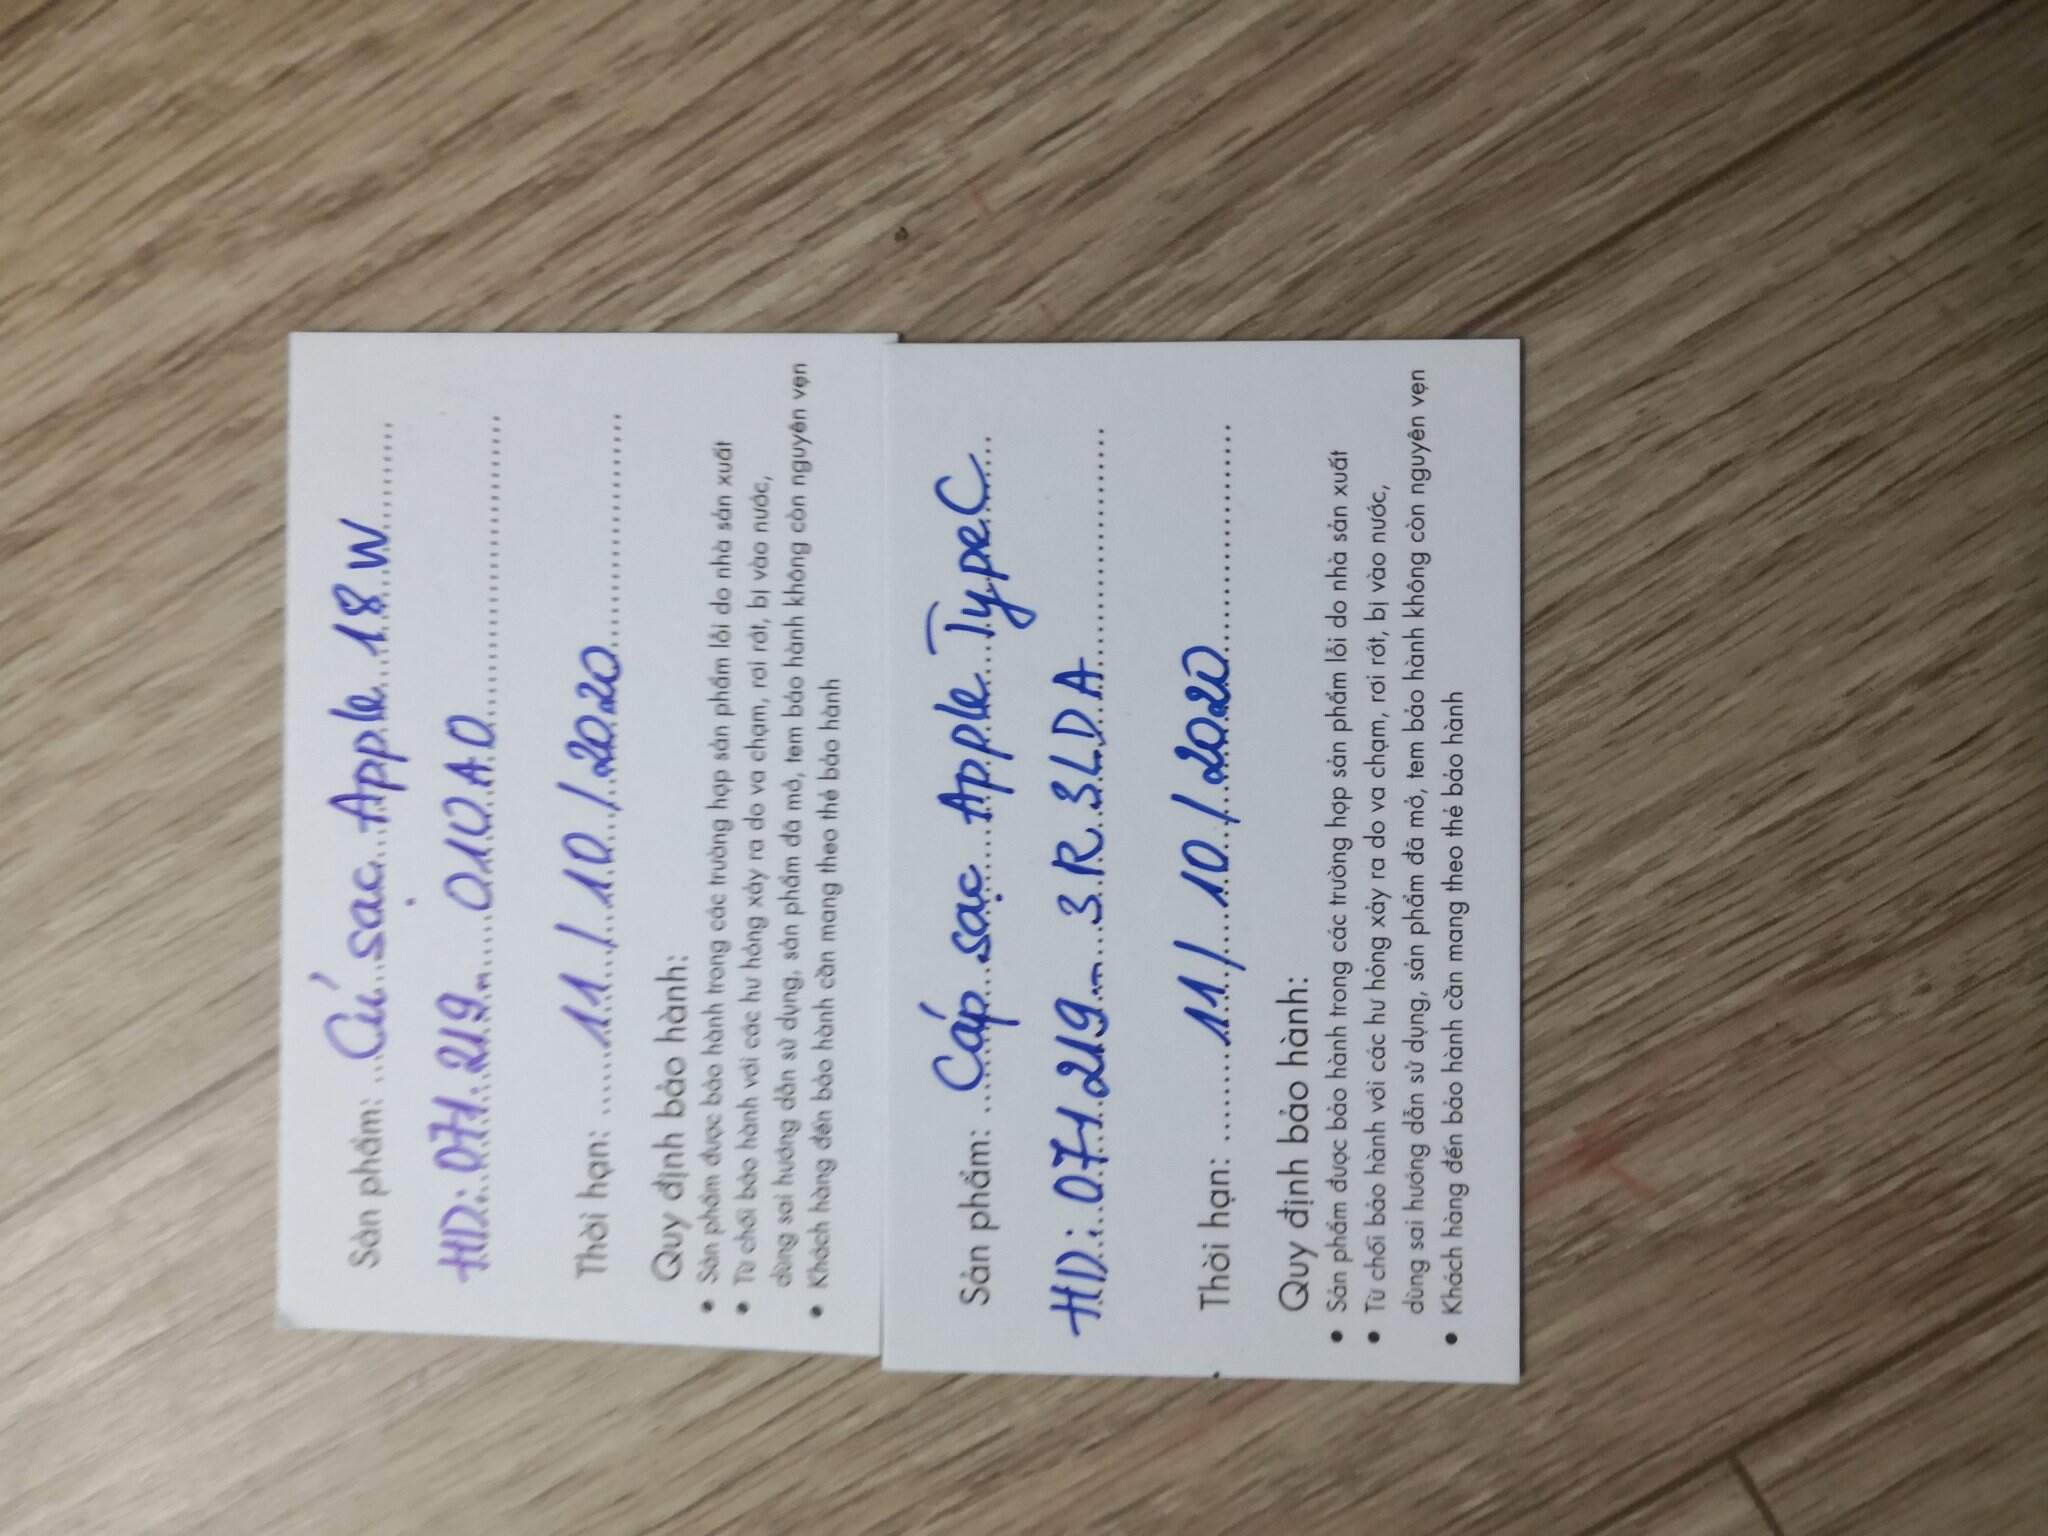 Sản phẩm: Củ sạc Apple 18W
HD: 071.219 010A0
Thời hạn: 11/10/2020
Quy định bảo hành:
• Sản phẩm được bảo hành trong các trường hợp sản phẩm lỗi do nhà sản xuất
• Từ chối bảo hành với các hư hỏng xảy ra do va chạm, rơi rớt, bị vào nước,
dùng sai hướng dẫn sử dụng, sản phẩm đã mở, tem bảo hành không còn nguyên vẹn
• Khách hàng đến bảo hành cần mang theo thẻ bảo hành
Sản phẩm: Cáp sạc Apple TypeC
HD: 071219 3R3LDA
Thời hạn: 11/10/2020
Quy định bảo hành:
• Sản phẩm được bảo hành trong các trường hợp sản phẩm lỗi do nhà sản xuất
• Từ chối bảo hành với các hư hỏng xảy ra do va chạm, rơi rớt, bị vào nước,
dùng sai hướng dẫn sử dụng, sản phẩm đã mở, tem bảo hành không còn nguyên vẹn
• Khách hàng đến bảo hành cần mang theo thẻ bảo hành